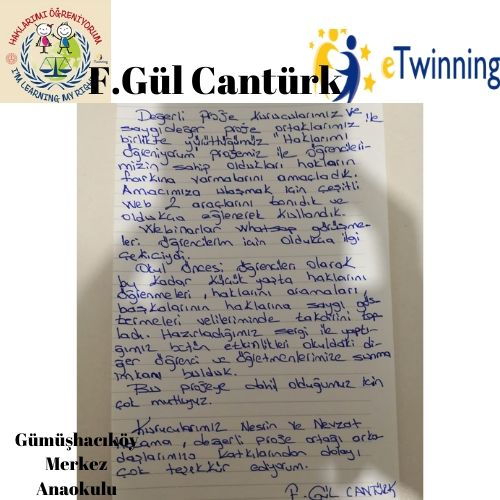 HAKLARIMI ÖĞRENİYORUM
I'M LEARNING MY RIGHTS
F.Gül Cantürk
eTwinning
Değerli proje kurucularımız ve
saygıdeğer proje ortaklarımız ile
birlikte yürüttüğümüz "Haklarımı
Öğreniyorum projemiz ile öğrencileri-
mizin sahip oldukları hakların
farkına varmalarını amaçladık.
Amacımıza ulaşmak için çeşitli
Web 2 araçlarını tanıdık ve
oldukça eğlenerek kullandık.
Webinarlar Whatsap görüşme-
leri öğrencilerim için oldukça ilgi
çekiciydi.
Okul öncesi öğrencileri olarak
bu kadar küçük yaşta haklarını
öğrenmeleri, haklarını aramaları,
başkalarının haklarına saygı gös-
termeleri velileriminde takdirini top-
ladı. Hazırladığımız sergi ile yaptı-
ğımız bütün etkinlikleri okuldaki di-
ğer öğrenci ve öğretmenlerimize sunma
imkanı bulduk.
Bu projeye dahil olduğumuz için
çok mutluyuz.
Kurucularımız Nesin ve Nevzat
hocama, değerli proje ortağı arka-
daşlarımıza katkılarından dolayı
çok teşekkür ediyorum.
F. GÜL CANTÜRK
Gümüşhacıköy
Merkez
Anaokulu